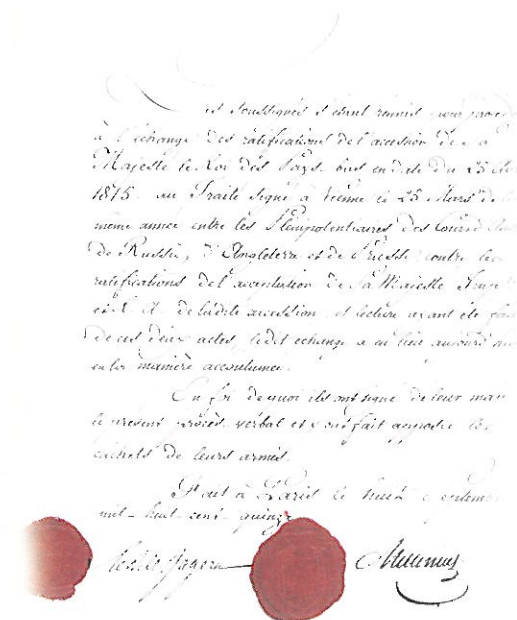 es soussignés s'étant réunis pour procéder
à l'échange des ratifications de l'accession de Sa
Majesté le Roi des Pays-bas en date du 25
1815. au Traité signé à Vienne le 25 Mars de la
même année entre les Plénipotentiaires des Cours
de Russie, d'Angleterre et de Prusse contre les
ratifications de l'acceptation de Sa Majesté
et R. A. de ladite accession, et lecture ayant été faite
de ces deux actes, ledit échange a eu lieu aujourd'hui
en la manière accoutumée.
En foi de quoi ils ont signé de leur main
le présent procès-verbal et y ont fait apposer les
cachets de leurs armes.
Fait à Paris le huit
mil-huit-cent-quinze
de Gagern Metternich